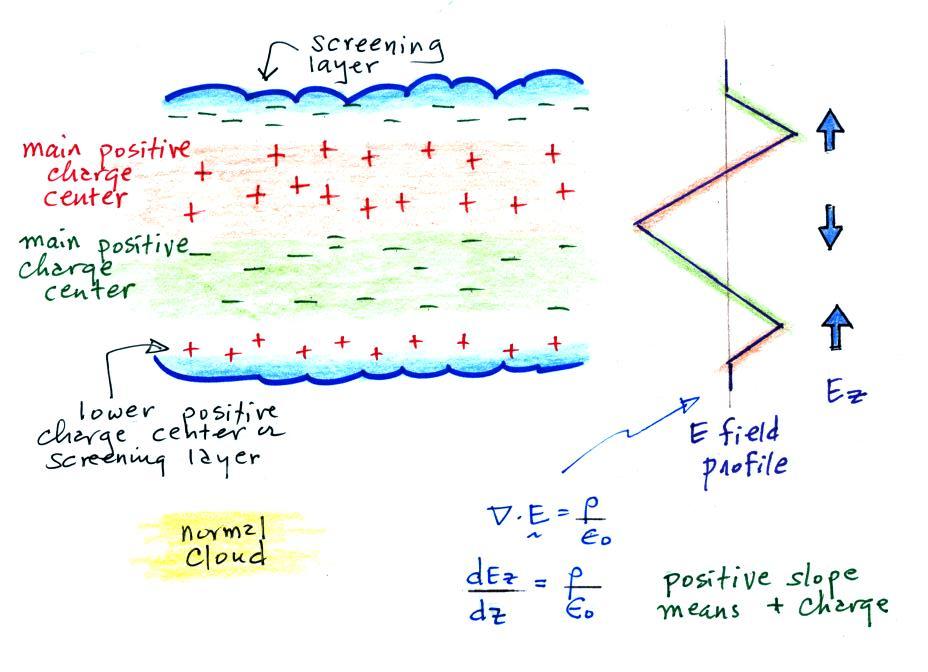 screening
layer
main positive
charge
center
main positive
charge
center
lower positive
charge center or
screening layer
normal
cloud
E field
profile
Ez
∇·E = ρ/ε₀
dEz/dz = ρ/ε₀
positive slope
means + charge